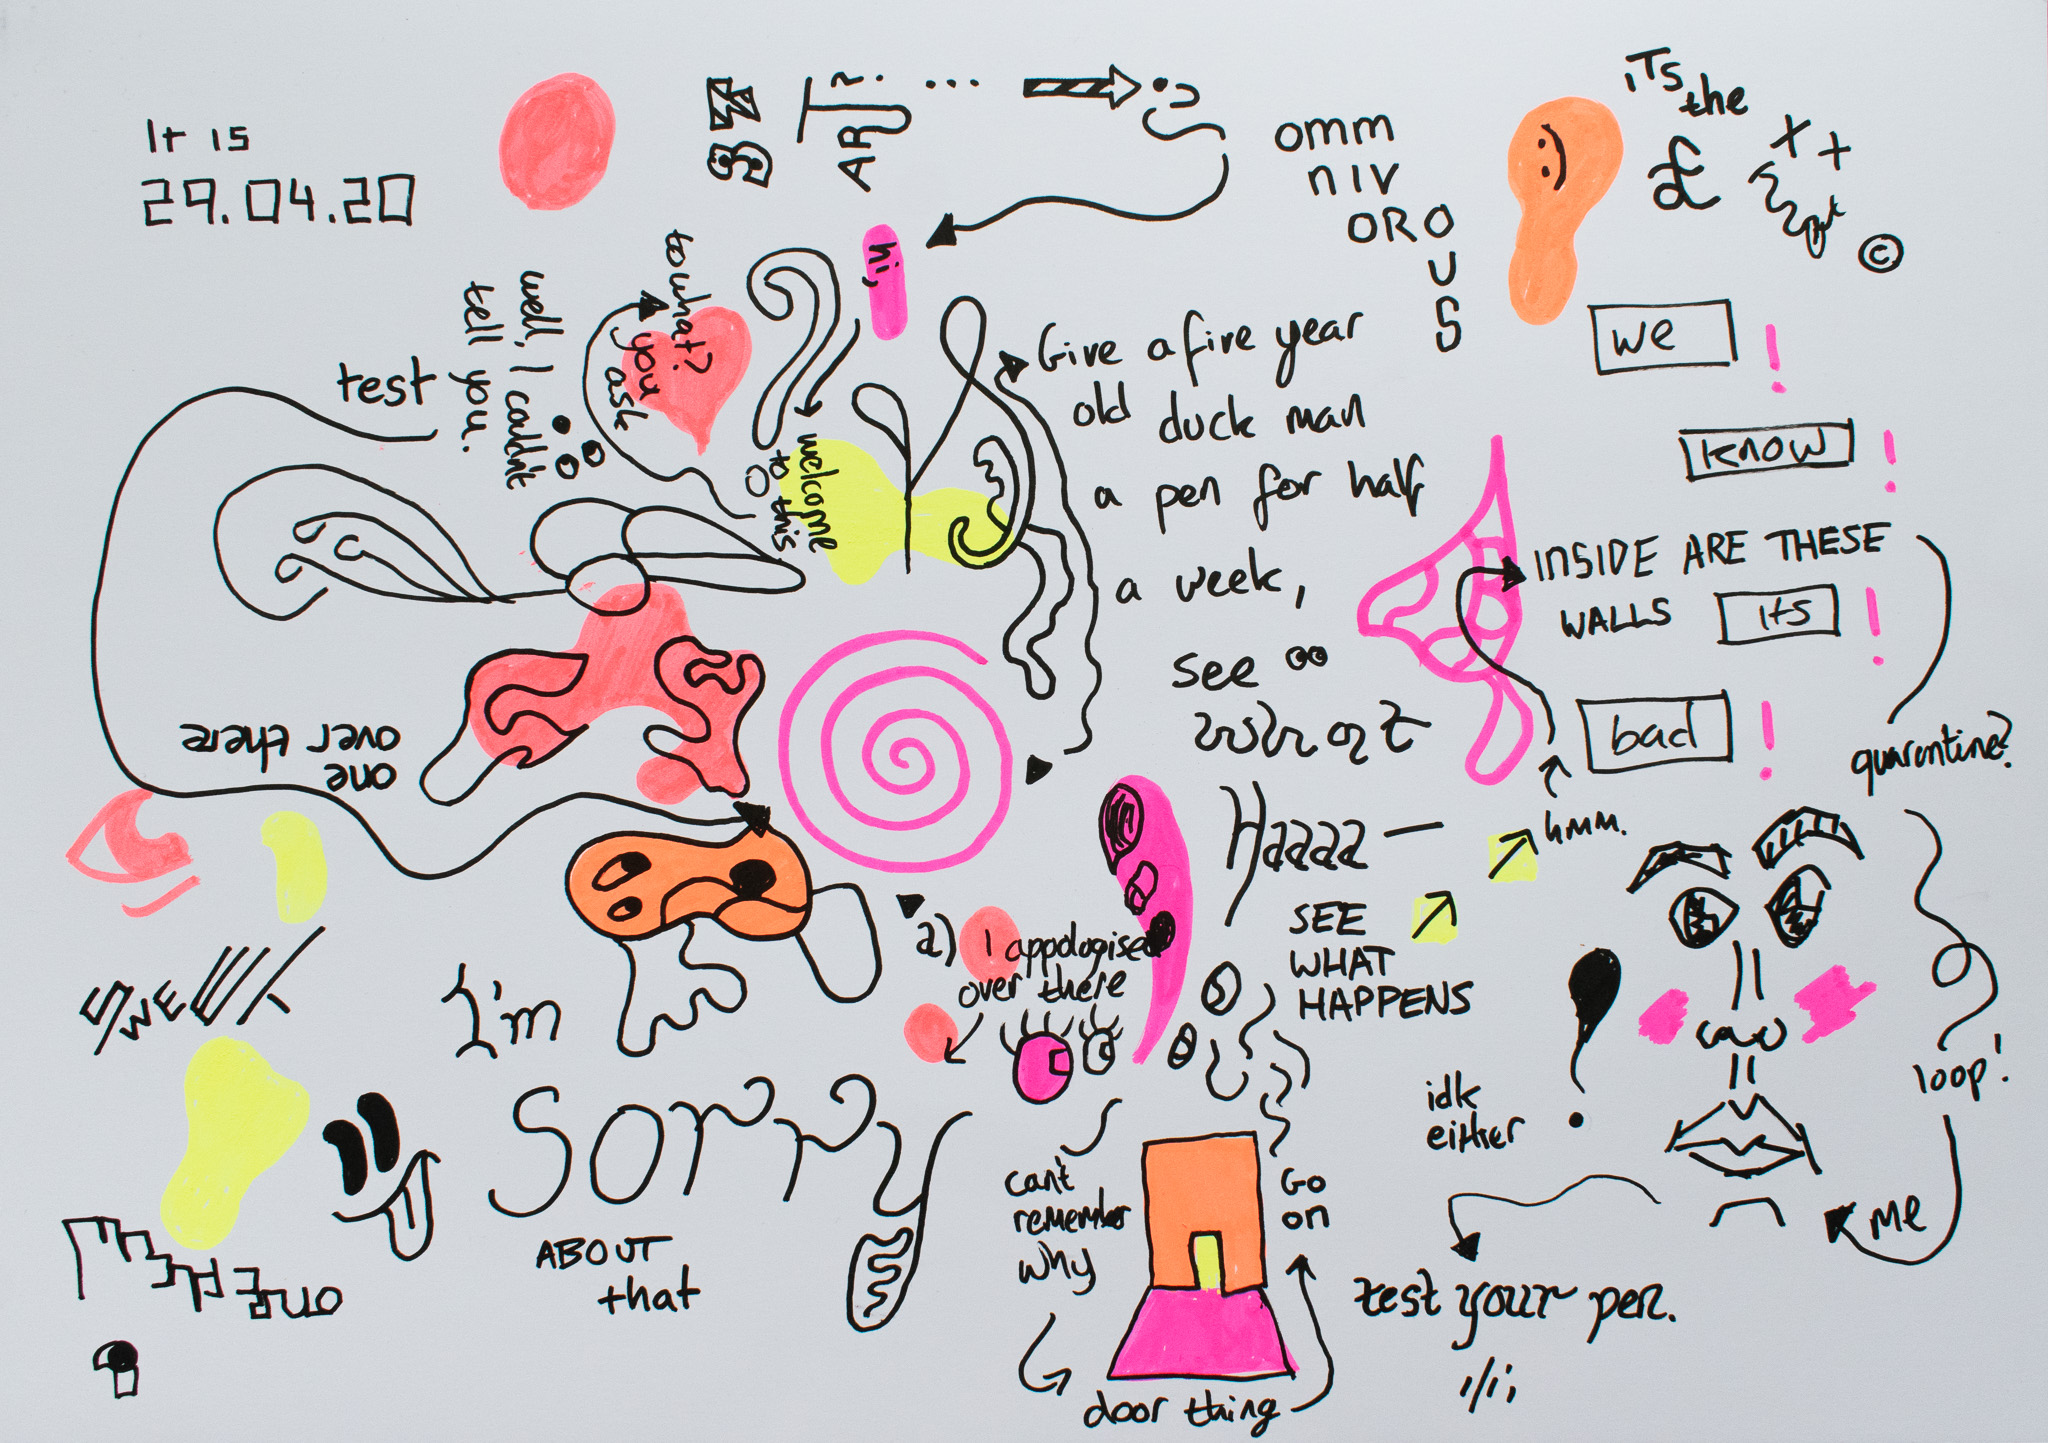 It is
29.04.20
ART?
...
omm
niv
OROUS
its
the
£
©
hi,
to what?
you
ask
well, I couldn't
tell you.
test
welcome
to this
Give a five year
old duck man
a pen for half
a week,
see
what
we !
know !
INSIDE ARE THESE
WALLS
its !
bad !
quarentine?
hmm.
one
over there
Haaaa —
SEE
WHAT
HAPPENS
a) I appologised
over there
I'm
sorry
ABOUT
that
can't
remember
why
Go
on
door thing
idk
either
loop!
me
test your pen.